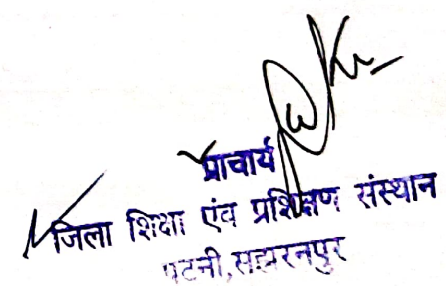 प्राचार्य
जिला शिक्षा एंव प्रशिक्षण संस्थान
पटनी,सहारनपुर